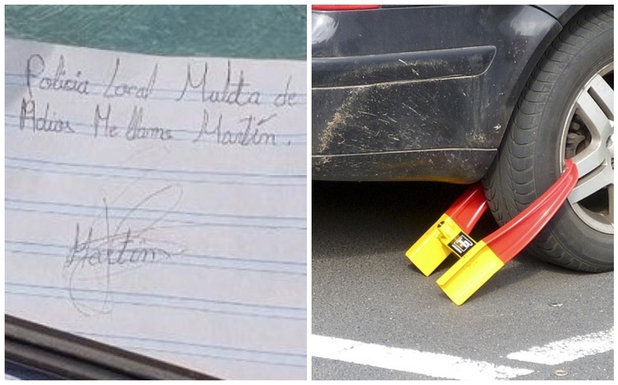 Policia Local Multa de
Adios Me llamo Martín.
Martín